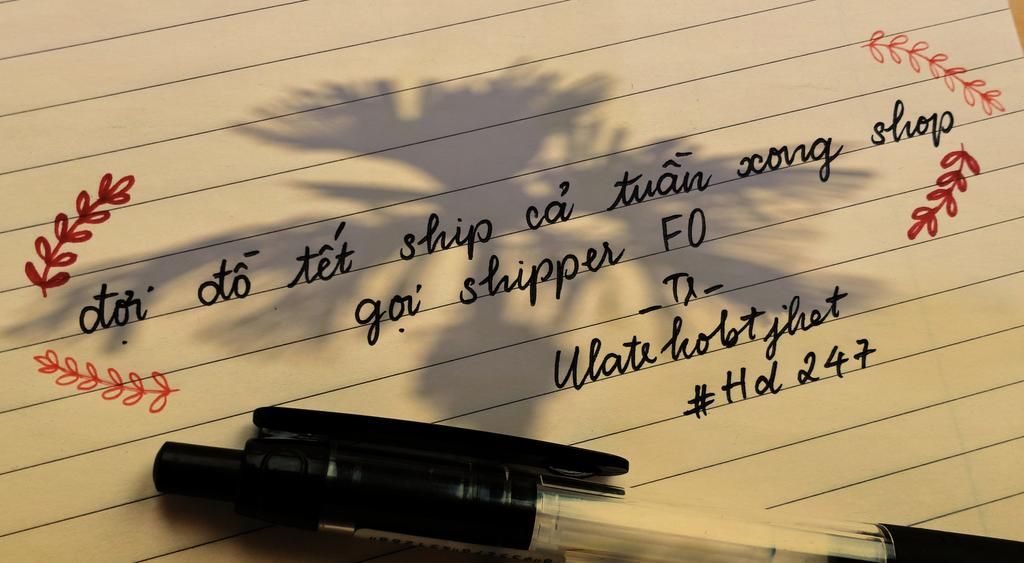 đợi đồ tết ship cả tuần xong shop
gọi shipper F0
Ulatehobtjhet
#Hd 247